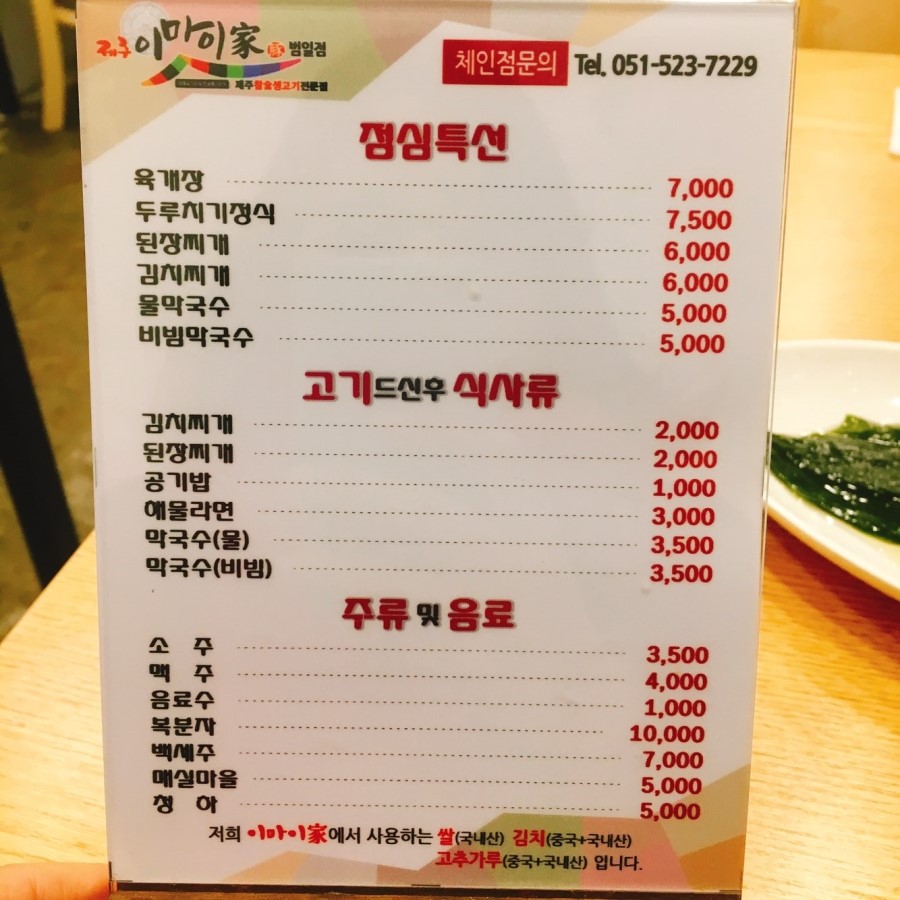 제주 이마이家 豚 범일점
제주황金생고기전문점
체인점문의 Tel. 051-523-7229
점심특선
육개장 7,000
두루치기정식 7,500
된장찌개 6,000
김치찌개 6,000
물막국수 5,000
비빔막국수 5,000
고기드신후 식사류
김치찌개 2,000
된장찌개 2,000
공기밥 1,000
해물라면 3,000
막국수(물) 3,500
막국수(비빔) 3,500
주류 및 음료
소 주 3,500
맥 주 4,000
음료수 1,000
복분자 10,000
백세주 7,000
매실마을 5,000
청 하 5,000
저희 이마이家에서 사용하는 쌀(국내산) 김치(중국+국내산)
고추가루(중국+국내산) 입니다.